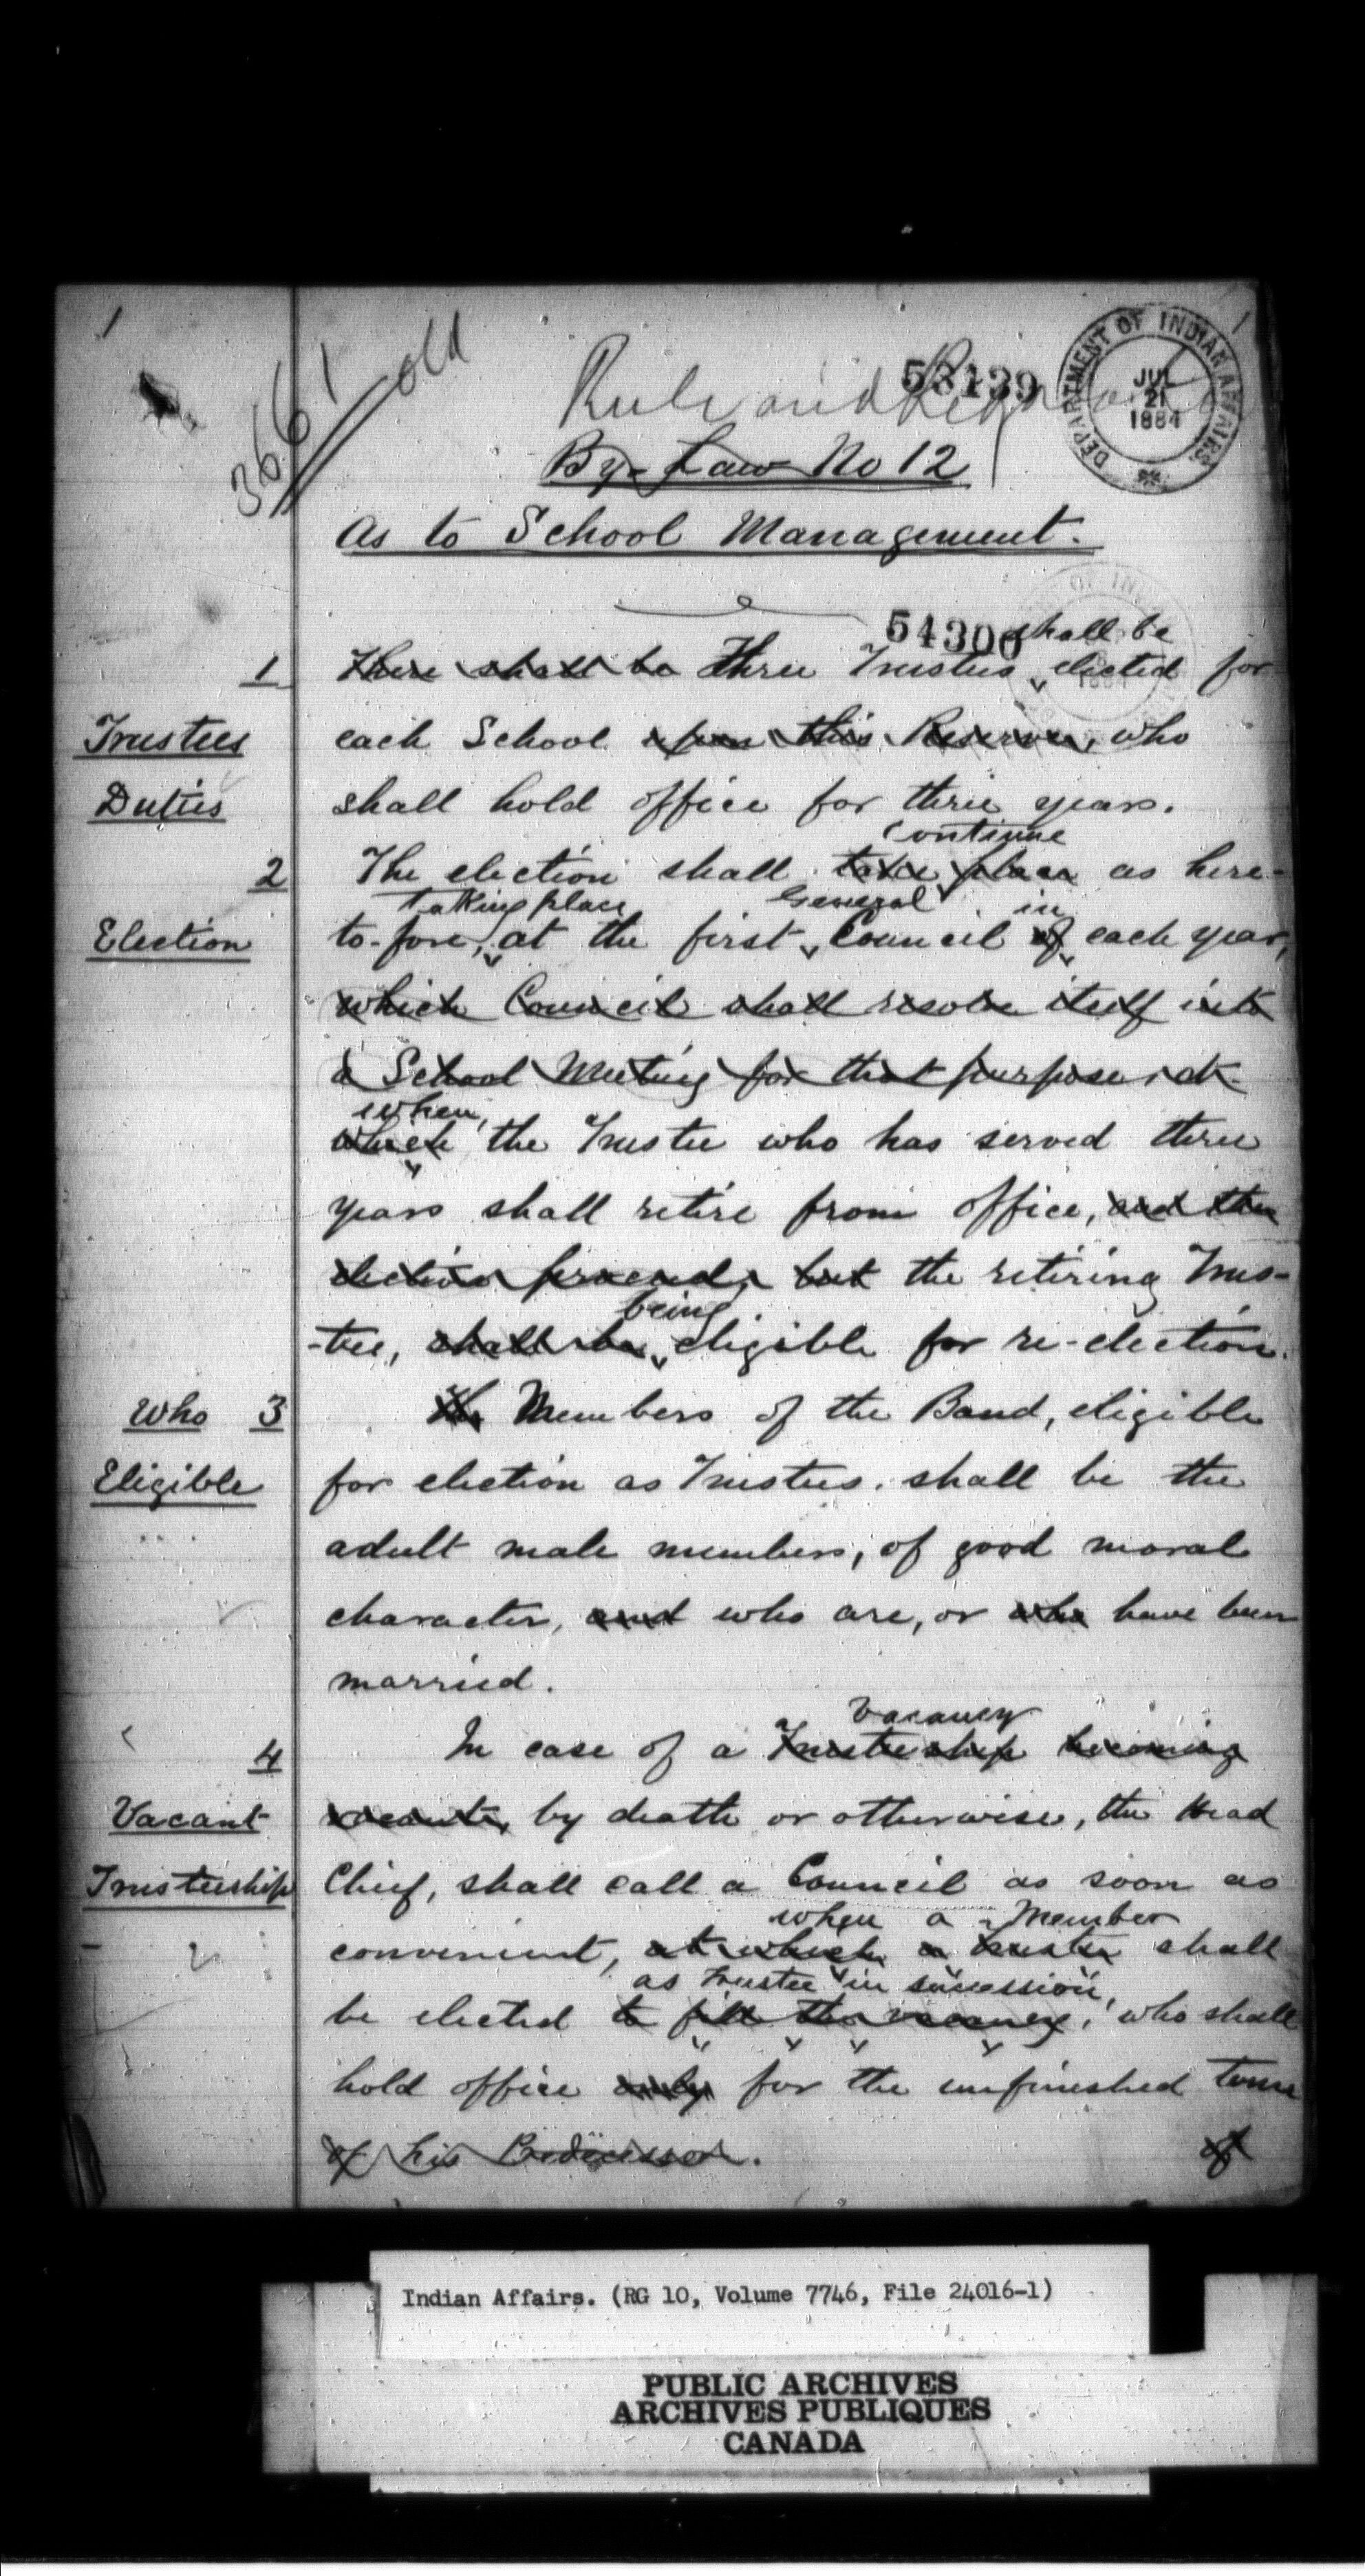 1
1
3661 old
53139
DEPARTMENT OF INDIAN AFFAIRS
JUL
21
1884
Rule and Regulation
By-Law No 12
As to School Management.
54300
shall be
1 There shall be Three Trustees elected for
Trustees each School upon this Reserve, who
Duties shall hold office for three years.
continue
2 The election shall take place as here-
taking place General in
Election to-fore, at the first Council of each year,
which Council shall resolve itself into
a School Meeting for that purpose, at
when,
which the Trustee who has served three
years shall retire from office, and the
election proceed, but the retiring Trus-
being
-tee, shall be eligible for re-election.
Who 3 The Members of the Band, eligible
Eligible for election as Trustees, shall be the
adult male members, of good moral
character, and who are, or who have been
married.
vacancy
4 In case of a Trusteeship becoming
Vacant vacant, by death or otherwise, the Head
Trusteeship Chief, shall call a Council as soon as
when a Member
convenient, at which a trustee shall
as Trustee in succession,
be elected to fill the vacancy, who shall
hold office only for the unfinished term
of his Predecessor.
of
Indian Affairs. (RG 10, Volume 7746, File 24016-1)
PUBLIC ARCHIVES
ARCHIVES PUBLIQUES
CANADA